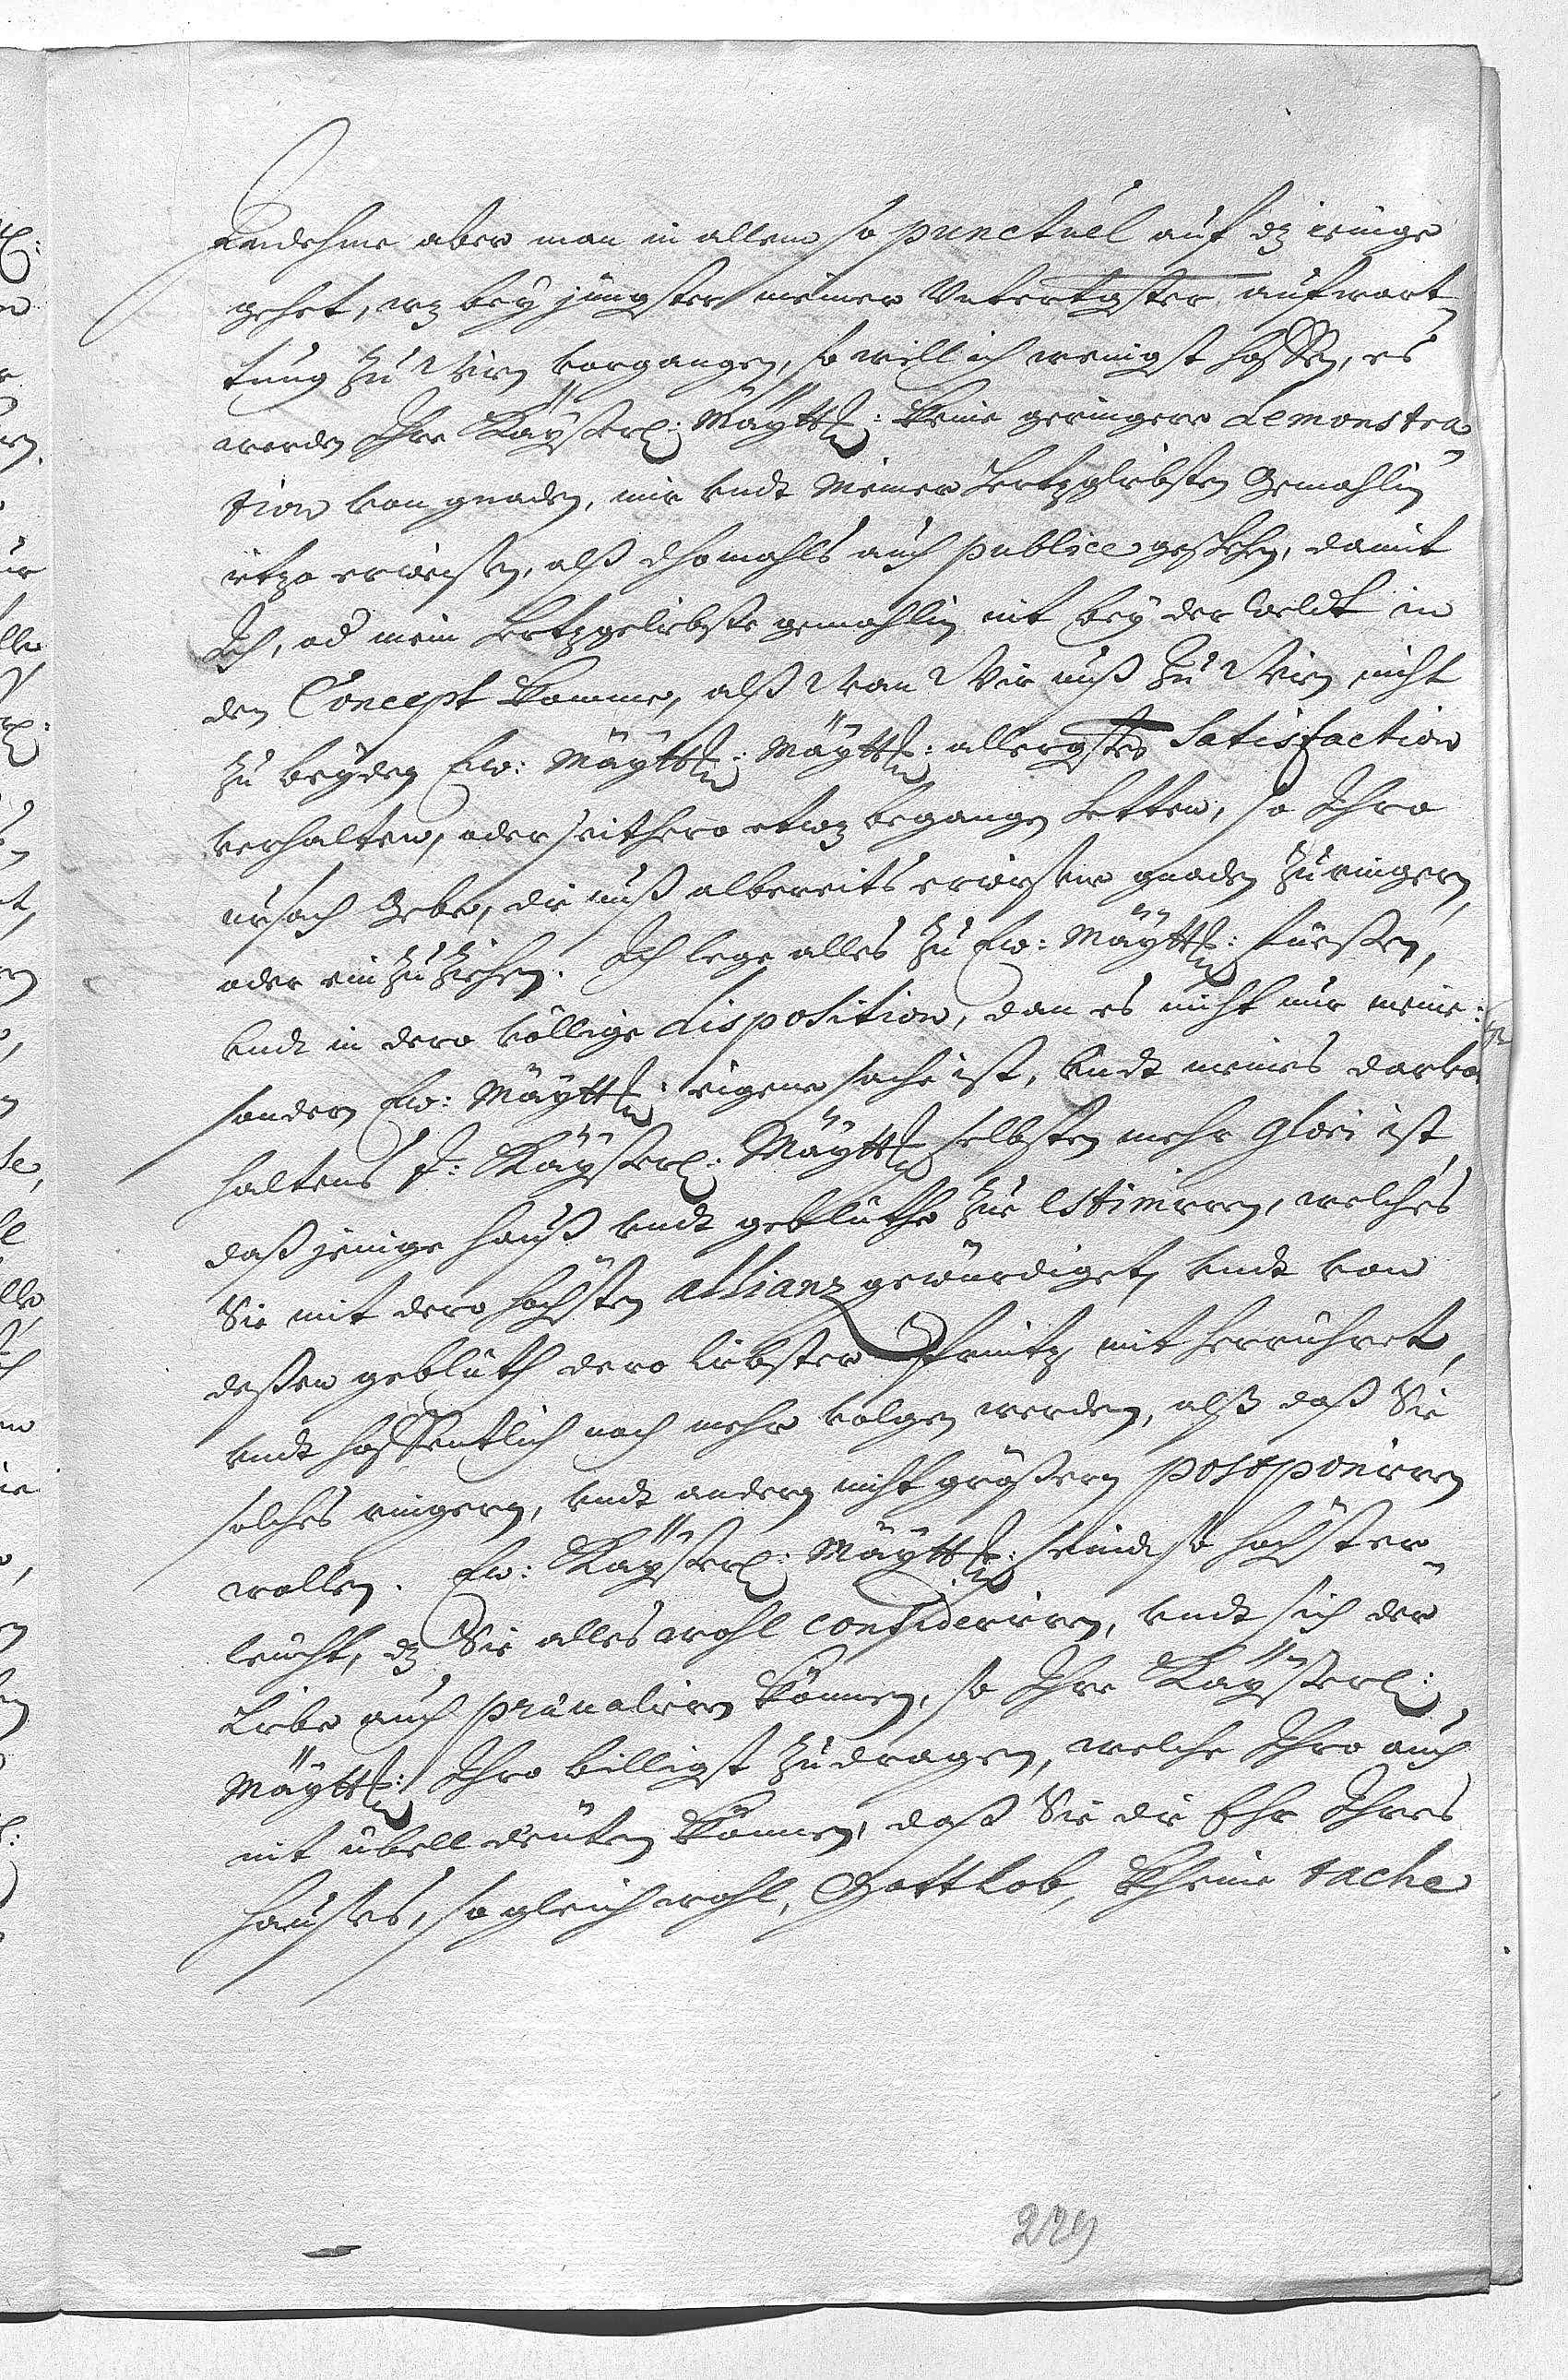 Nachdeme aber man in allem so punctuël auf dz ienige
gehet, wz bey jüngster meiner Untertgster aufwart-
tung zu Wien vorgangen, so will ich wenigst hoffen, es
werden Ihre Käyßerl: Mäytt: keine geringere demonstra-
tion von gnaden, mir undt Meiner Hertzgliebsten Gemahlin
ietzo erweisen, alß dhomahls auch publice geschehen, damit
Ich, od mein Hertzgeliebste gemahlin nit bey der weldt in
den Concept komme, alß wan Wir unß zu Wien nicht
zu beyden Ew: Mäytt: Mäytt: allergster Satisfaction
verhalten, oder seithero etwz begangen hetten, so Ihro
ursach gebe, die unß albereits erwisene gnaden zuringern,
oder einzuziehen. Ich lege alles zu Ew: Mäytt: fueßen,
undt in dero völlige disposition, dan es nicht nur meine:
sondern Ew: Mäytt: eigene sache ist, undt meines darvor
haltens I: Käyßerl: Mäytt: selbsten mehr glori ist,
daß jenige hauß undt geblüthe zue estimiren, welches
Sie mit dero höchsten allianz gewürdiget, undt von
deßen geblüth dero liebster Printz mit herrühret,
undt hoffentlich noch mehr volgen werden, alß daß Sie
solches ringern, undt andern nicht größern postponiren
wollen. Ew: Käyßerl: Mäytt: seind so höchster-
leucht, dz Sie alles wohl consideriren, undt sich der
Liebe auch prævaliren können, so Ihre Käyßerl:
Mäytt: Ihro billigst zudragen, welche Ihro auch
nit übell deuten können, daß Sie die Ehr Ihres
haußes, so gleich wohl, Gott Lob, kheine tache
229